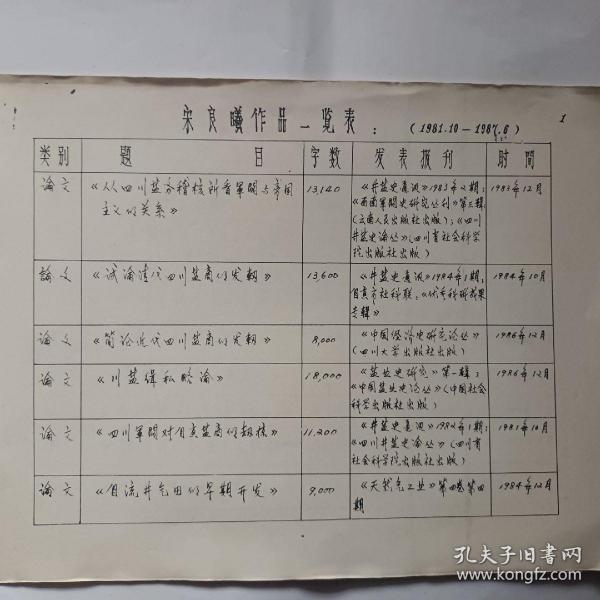 1
宋良曦作品一览表：（1981.10－1987.6）
类别 题目 字数 发表报刊 时间
论文 《从四川盐务稽核所看军阀与帝国 13,140 《井盐史通讯》1983年2期； 1983年12月
主义的关系》 《西南军阀史研究丛刊》第三辑
(云南人民出版社出版)；《四川
井盐史论丛》(四川省社会科学
院出版社出版)
論文 《试论清代四川盐商的发轫》 13,600 《井盐史通讯》1984年1期； 1984年10月
自贡市社科联：《优秀科研成果
专辑》
论文 《简论清代四川盐商的发轫》 8,000 《中国经济史研究论丛》 1986年12月
(四川大学出版社出版)
论文 《川盐缉私略论》 18,000 《盐业史研究》第一辑； 1986年12月
《中国盐业史论丛》(中国社会
科学出版社出版)
论文 《四川軍閥对自贡盐商的 11,200 《井盐史通讯》1982年1期； 1981年10月
《四川井盐史论丛》(四川省
社会科学院出版社出版)
论文 《自流井气田的早期开发》 9,000 《天然气工业》第四卷第四 1984年12月
期
孔夫子旧书网
www.kongfz.com